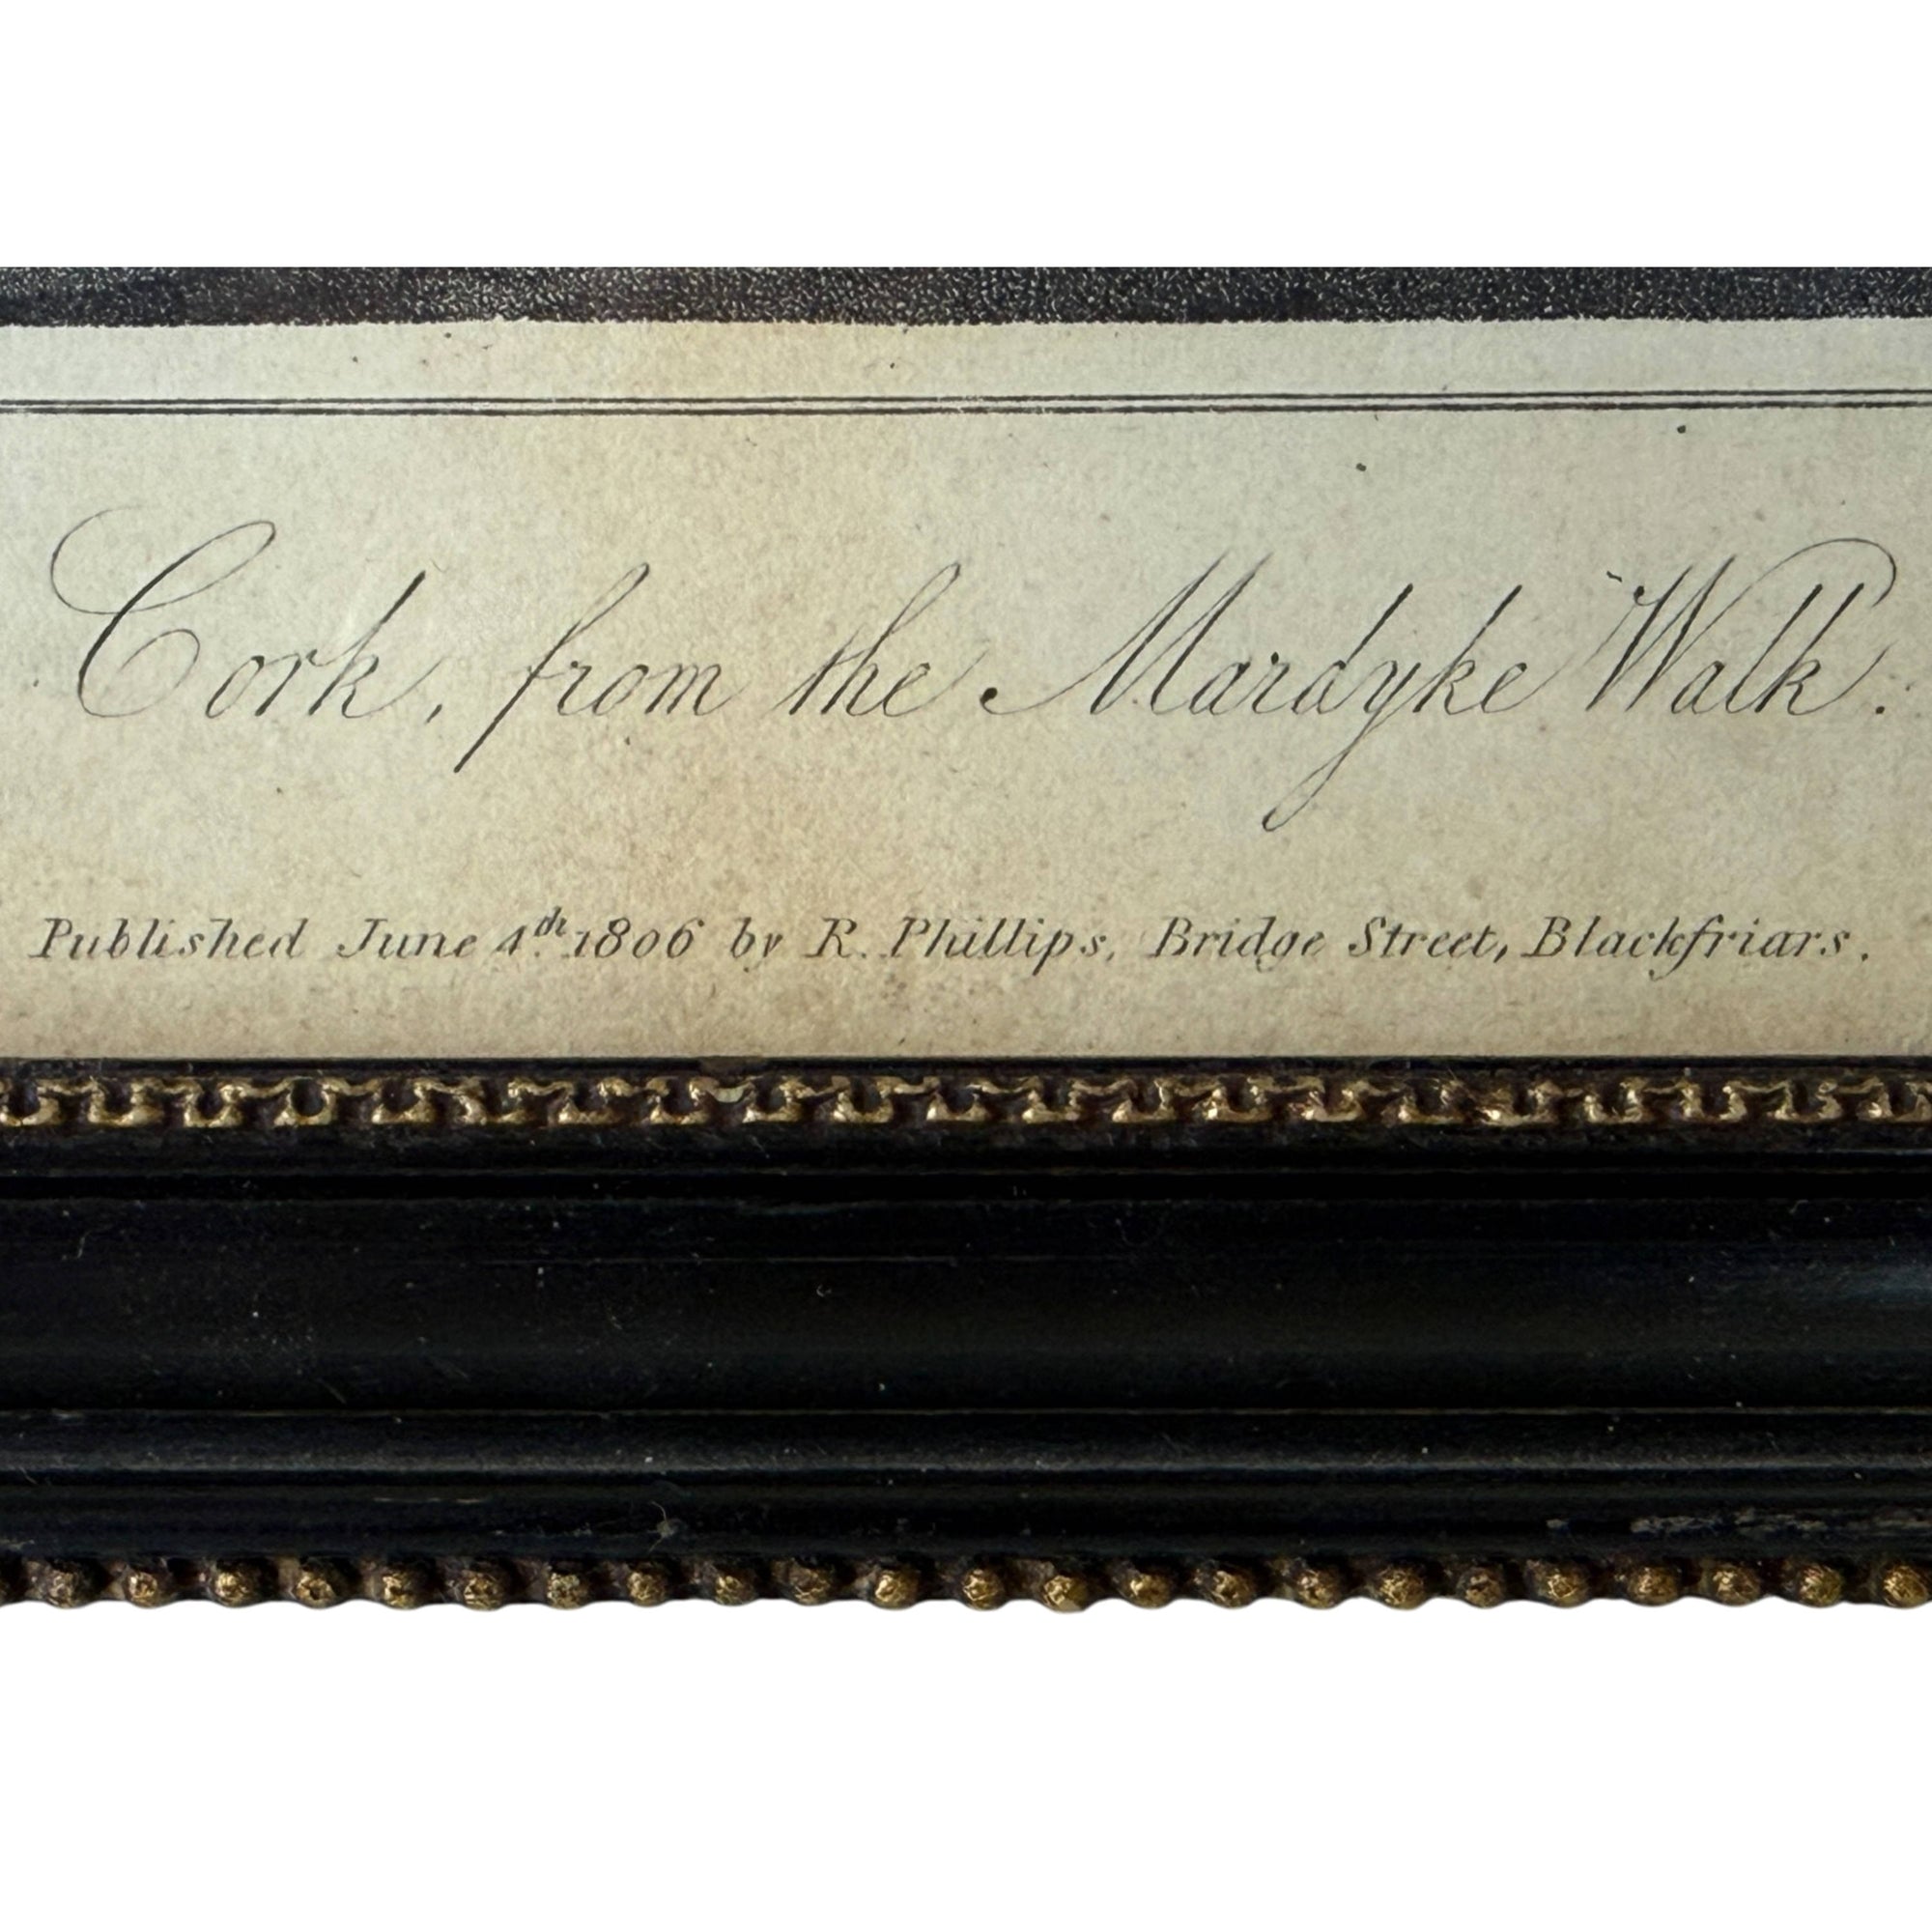 Cork, from the Mardyke Walk.
Published June 4th. 1806 by R. Phillips, Bridge Street, Blackfriars.